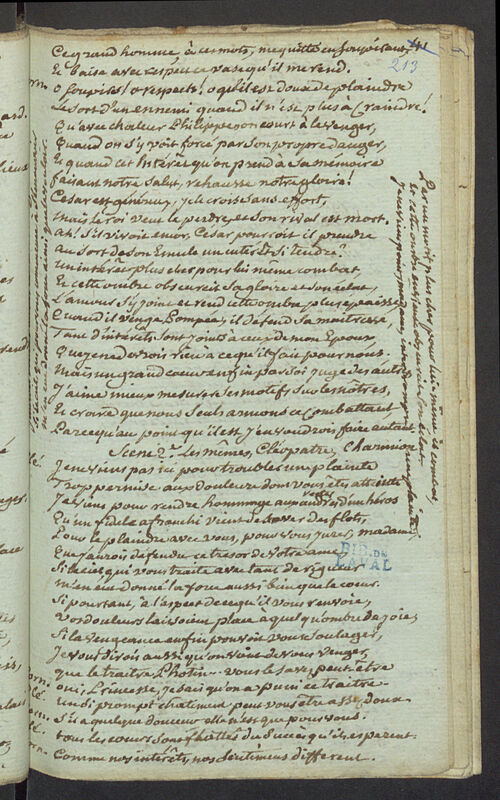 Ce grand homme à ces mots, me quitte en soupirant,
213
Et baise avec respect ce vase qu'il me rend.
o soupirs! o respects! o qu'il est doux de plaindre
Le sort d'un ennemi quand il n'est plus à Craindre!
Qu'avec chaleur Philippe on court à le venger,
Quand on s'y voit forcé par son propre danger,
Et quand cet Intérêt qu'on prend à sa mémoire
faisant notre salut, rehausse notre gloire!
César est généreux, je le crois sans effort,
mais le roi veut le perdre, et son rival est mort.
ah! s'il vivoit encor, César pourroit-il prendre
au sort de son Emule un intérêt si tendre?
un intérêt plus cher pour lui même combat,
Et cette ombre obscurcit sa gloire et son éclat,
L'amour s'y joint et rend cette ombre plus épaisse
Quand il venge Pompée, il défend sa maitresse,
Tant d'intérêts sont joints à ceux de mon Epoux,
Que je ne dois rien à ce qu'il fait pour nous.
mais un grand coeur enfin par soi juge des autres
J'aime mieux mesurer ses motifs sur les nôtres,
Et croire que nous seuls armons ce Combattant
Parcequ'au point qu'il est j'en voudrois faire autant.
Scene 2e. Les mêmes, Cléopatre, Charmion
Je ne viens pas ici pour troubler une plainte
Trop permise aux douleurs dont vous êtes atteinte
Je viens pour rendre hommage aux cendres d'un héros
Qu'un fidele affranchi vient de sauver des flots,
Pour le plaindre avec vous, pour vous jurer, madame,
Que j'aurois défendu ce trésor de votre ame,
Si le ciel qui vous traite avec tant de rigueur
m'en eut donné la force aussi bien que le coeur.
Si pourtant, à l'aspect de ce qu'il vous renvoie,
vos douleurs laissoient place à quelqu'ombre de joie,
Si la vengeance enfin pouvoit vous soulager,
Je vous dirois aussi qu'on vient de vous venger,
que le traitre Photin... vous le savez peut-être
oui, Princesse, je sais qu'on a puni ce traitre
un si prompt chatiment peut vous être assez doux
s'il a quelque douceur elle n'est que pour vous.
tous les coeurs sont flattés du succès qu'ils esperent.
Comme nos intérêts, nos sentimens different.
BIB. DE
LAVAL